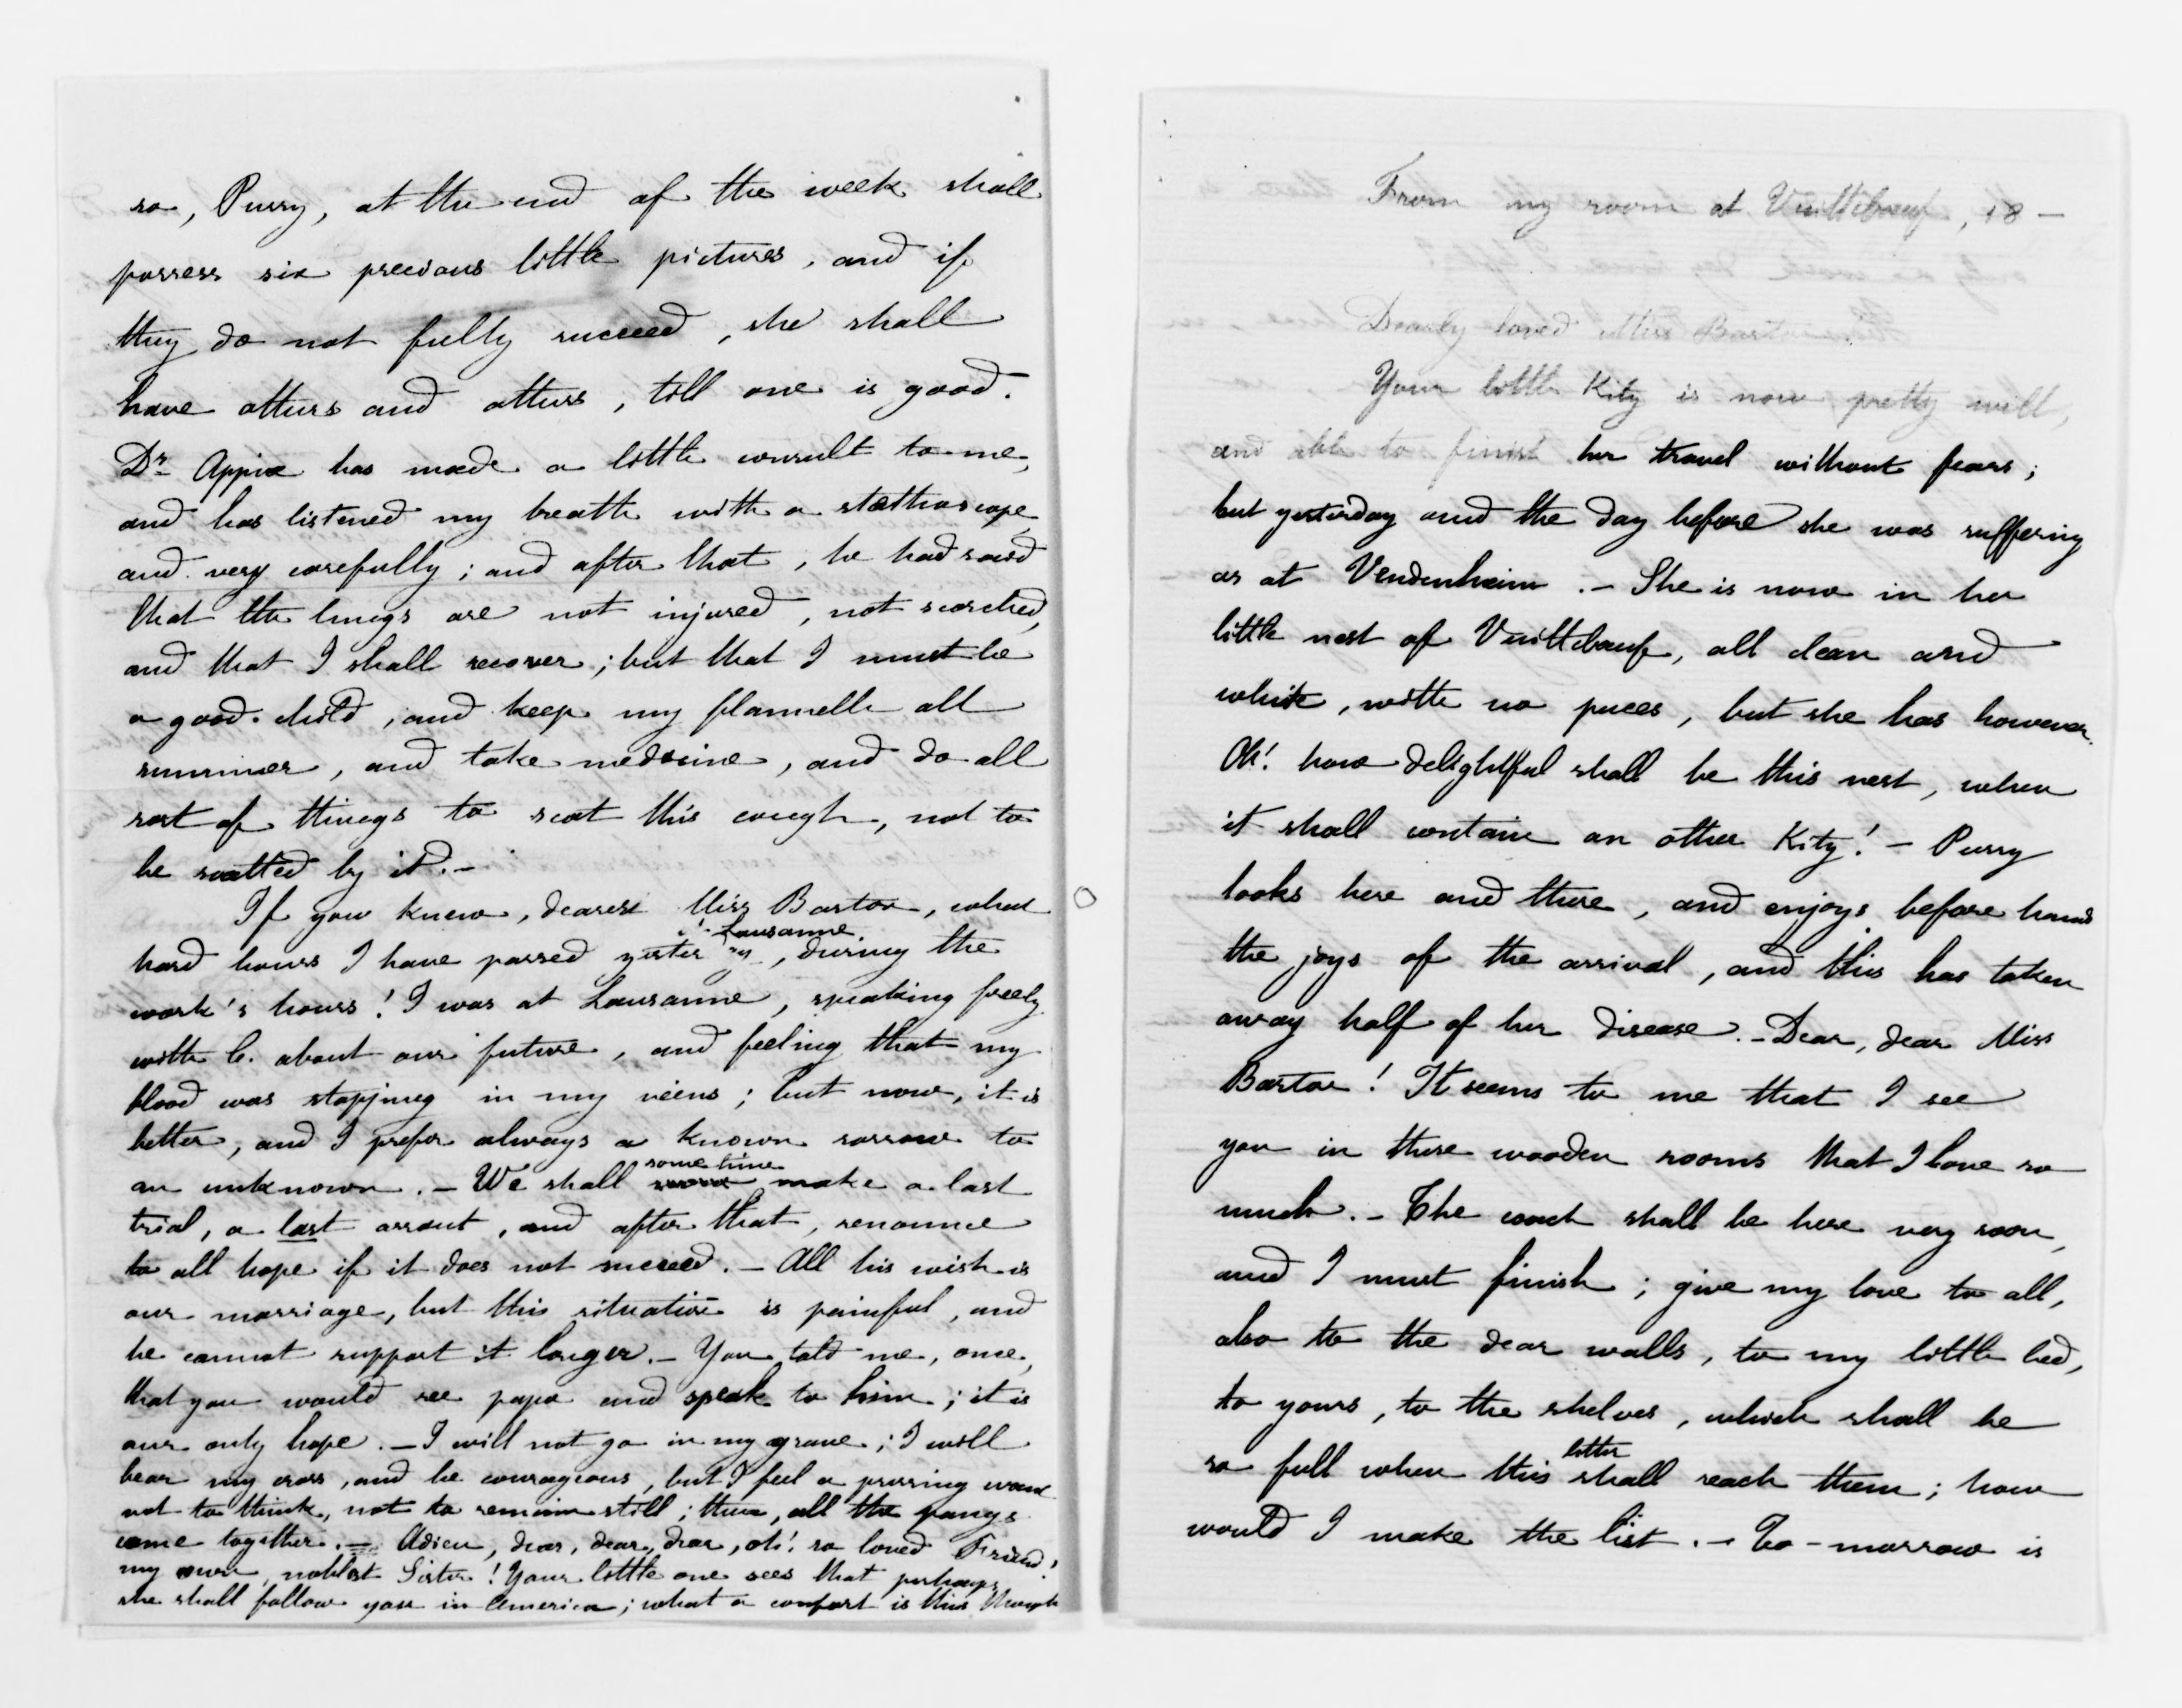 so, Pussy, at the end of the week shall
possess six precious little pictures, and if
they do not fully succeed, she shall
have others and others, till one is good.
Dr Appia has made a little consult to me,
and has listened my breath with a stæthoscope
and very carefully; and after that, he had said
that the lungs are not injured, not scorched,
and that I shall recover; but that I must be
a good child, and keep my flannelle all
summer, and take medecine, and do all
sort of things to scat this cough, not to
be scatted by it. –
If you knew, dearest Miss Barton, what
Lausanne
hard hours I have passed yesterday, during the
work's hours! I was at Lausanne, speaking freely
with C. about our future, and feeling that my
blood was stopping in my veins; but now, it is
better, and I prefer always a known sorrow to
sometime
an unknown. – We shall make a last
trial, a last assaut, and after that, renounce
to all hope if it does not succeed. – All his wish is
our marriage, but this situation is painful, and
he cannot support it longer. – You told me, once,
that you would see papa and speak to him; it is
our only hope. – I will not go in my grave; I will
bear my cross, and be courageous, but I feel a pressing want
not to think, not to remain still; then, all the pangs
come together. – Adieu, dear, dear, dear, oh! so loved Friend!
my own, noblest Sister! Your little one sees that perhaps
she shall follow you in America; what a comfort is this though
From my room at Vuittebœuf, 18 –
Dearly loved Miss Barton.
Your little Kity is now pretty well,
and able to finish her travel without fears;
but yesterday and the day before she was suffering
as at Vendenheim. – She is now in her
little nest of Vuittebœuf, all clean and
white, with no puces, but she has however.
Oh! how delightful shall be this nest, when
it shall contain an other Kity! – Pussy
looks here and there, and enjoys before hand
the joys of the arrival, and this has taken
away half of her disease. – Dear, dear Miss
Barton! It seems to me that I see
you in these wooden rooms that I love so
much. – The coach shall be here very soon,
and I must finish; give my love to all,
also to the dear walls, to my little bed,
to yours, to the shelves, which shall be
letter
so full when this shall reach them; how
would I make the list. – To-morrow is